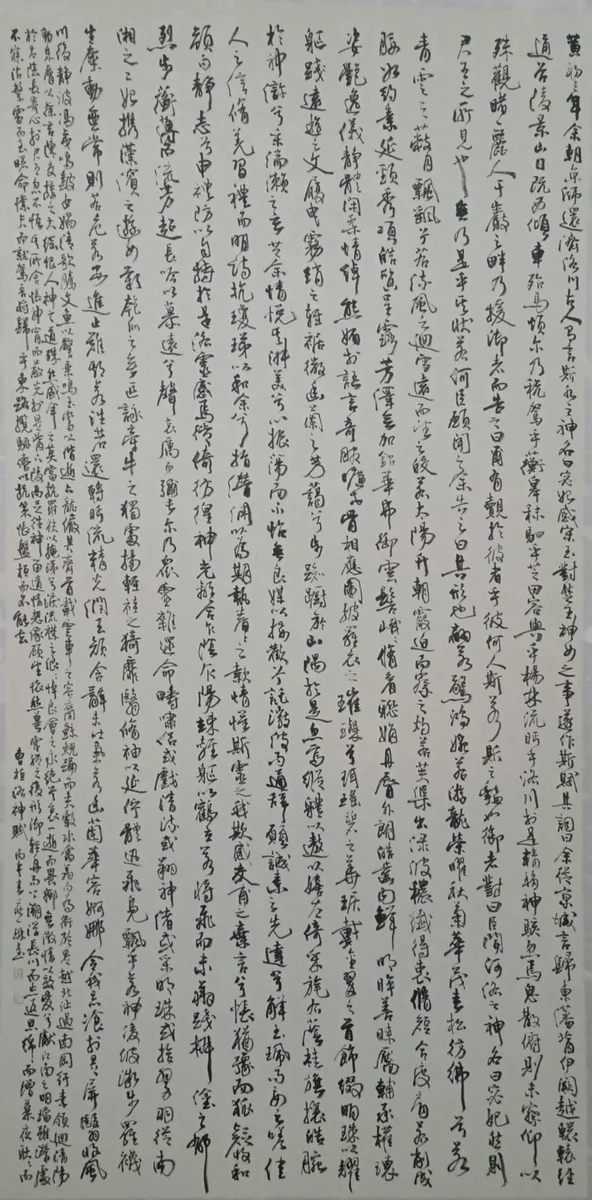 黄初三年余朝京師還濟洛川古人有言斯水之神名曰宓妃感宋玉對楚王神女之事遂作斯賦其詞曰余從京域言歸東藩背伊闕越轘轅經
通谷陵景山日既西傾車殆馬煩尔乃税駕乎蘅皋秣駟乎芝田容與乎楊林流眄乎洛川於是精移神駭忽焉思散俯則未察仰以
殊觀睹一麗人于巖之畔乃援御者而告之曰爾有覿於彼者乎彼何人斯若斯之豔也御者對曰臣聞河洛之神名曰宓妃然則
君王之所見也無乃是乎其狀若何臣願聞之余告之曰其形也翩若驚鴻婉若游龍榮曜秋菊華茂春松彷彿兮若
青雲之蔽月飄飖兮若流風之迴雪遠而望之皎若太陽升朝霞迫而察之灼若芙蕖出淥波穠纖得衷脩短合度肩若削成
腰如約素延頸秀項皓質呈露芳澤無加鉛華弗御雲髻峨峨脩眉聯娟丹脣外朗皓齒内鮮明眸善睞靨輔承權瓌
姿艷逸儀静體閑柔情綽態媚於語言奇服曠世骨相應圖披羅衣之璀璨兮珥瑶碧之華琚戴金翠之首飾綴明珠以耀
軀踐遠遊之文履曳霧綃之輕裾微幽蘭之芳藹兮步踟躕於山隅於是忽焉縱體以遨以嬉左倚采旄右蔭桂旗攘皓腕
於神滸兮采湍瀨之玄芝余情悦其淑美兮心振蕩而不怡無良媒以接歡兮託微波而通辭願誠素之先達兮解玉珮而要之嗟佳
人之信脩羌習禮而明詩抗瓊珶以和余兮指潛淵以爲期執眷眷之款情懼斯靈之我欺感交甫之棄言兮悵猶豫而狐疑收和
顔而静志兮申禮防以自持於是洛靈感焉徙倚彷徨神光離合乍陰乍陽竦輕軀以鶴立若將飛而未翔踐椒塗之郁
烈步蘅薄而流芳超長吟以慕遠兮聲哀厲而彌長尔乃衆靈雜遝命疇嘯侣或戲清流或翔神渚或采明珠或拾翠羽從南
湘之二妃携漢濱之遊女歎匏瓜之無匹詠牽牛之獨處揚輕袿之猗靡翳脩袖以延佇體迅飛凫飄忽若神凌波微步羅襪
生塵動無常則若危若安進止難期若往若還轉眄流精光潤玉顔含辭未吐氣若幽蘭華容婀娜令我忘湌於是屏翳收風
川后静波馮夷鳴鼓女媧清歌騰文魚以警乘鳴玉鸞以偕逝六龍儼其齊首載雲車之容裔鯨鯢踊而夾轂水禽翔而爲衛於是越北沚過南岡紆素領迴清陽
動朱脣以徐言陳交接之大綱恨人神之道殊怨盛年之莫當抗羅袂以掩涕兮淚流襟之浪悼良會之永絶兮哀一逝而異鄉無微情以效愛兮獻江南之明璫雖潛處
於太陰長寄心於君王忽不悟其所舍悵神宵而蔽光於是背下陵高足往神留遺情想像顧望懷愁冀靈體之復形御輕舟而上溯浮長川而忘返思綿綿而增慕夜耿耿而
不寐沾繁霜而至曙命僕夫而就駕吾將歸乎東路攬騑轡以抗策悵盤桓而不能去
曹植洛神賦 丙午春